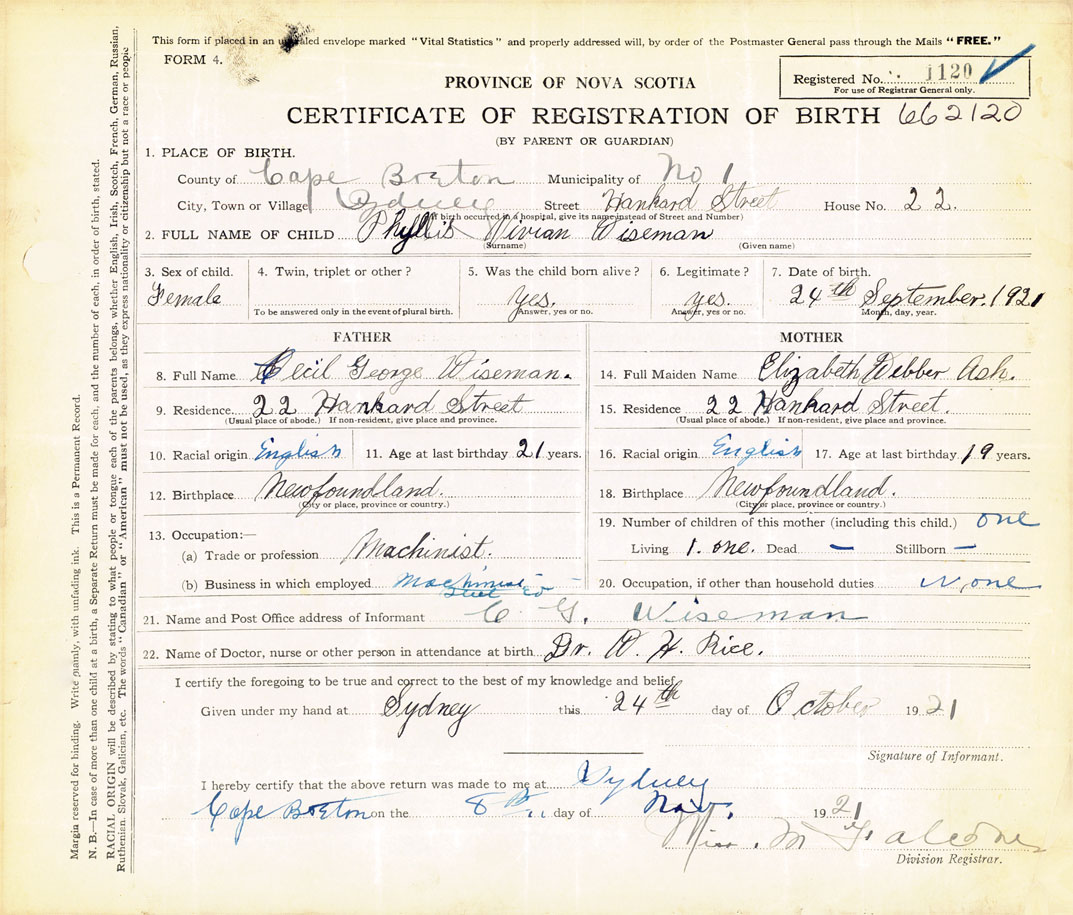 This form if placed in an unsealed envelope marked "Vital Statistics" and properly addressed will, by order of the Postmaster General pass through the Mails "FREE."
FORM 4.
Registered No. 1120
For use of Registrar General only.
PROVINCE OF NOVA SCOTIA
CERTIFICATE OF REGISTRATION OF BIRTH 662120
(BY PARENT OR GUARDIAN)
1. PLACE OF BIRTH.
County of Cape Breton Municipality of No 1
City, Town or Village Sydney Street Hankard Street House No. 22.
(If birth occurred in a hospital, give its name instead of Street and Number)
2. FULL NAME OF CHILD Phyllis Vivian Wiseman
(Surname) (Given name)
3. Sex of child. 4. Twin, triplet or other? 5. Was the child born alive? 6. Legitimate? 7. Date of birth.
Female yes. yes. 24th September. 1921
To be answered only in the event of plural birth. Answer, yes or no. Answer, yes or no. Month, day, year.
FATHER
8. Full Name Cecil George Wiseman.
9. Residence 22 Hankard Street
(Usual place of abode.) If non-resident, give place and province.
10. Racial origin English 11. Age at last birthday 21 years.
12. Birthplace Newfoundland.
(City or place, province or country.)
13. Occupation:—
(a) Trade or profession Machinist.
(b) Business in which employed Steel Co
MOTHER
14. Full Maiden Name Elizabeth Webber Ash.
15. Residence 22 Hankard Street.
(Usual place of abode.) If non-resident, give place and province.
16. Racial origin English 17. Age at last birthday 19 years.
18. Birthplace Newfoundland.
(City or place, province or country.)
19. Number of children of this mother (including this child.) one
Living 1. one. Dead — Stillborn —
20. Occupation, if other than household duties None
21. Name and Post Office address of Informant C. G. Wiseman
22. Name of Doctor, nurse or other person in attendance at birth Dr. W. H. Rice.
I certify the foregoing to be true and correct to the best of my knowledge and belief.
Given under my hand at Sydney this 24th day of October 1921
Signature of Informant.
I hereby certify that the above return was made to me at Sydney
Cape Breton on the 8th day of Nov. 1921
Miss. M
Division Registrar.
Margin reserved for binding. Write plainly, with unfading ink. This is a Permanent Record.
N. B.—In case of more than one child at a birth, a Separate Return must be made for each, and the number of each, in order of birth, stated.
RACIAL ORIGIN will be described by stating to what people or tongue each of the parents belongs, whether English, Irish, Scotch, French, German, Russian.
Ruthenian. Slovak, Galician, etc. The words "Canadian" or "American" must not be used, as they express nationality or citizenship but not a race or people